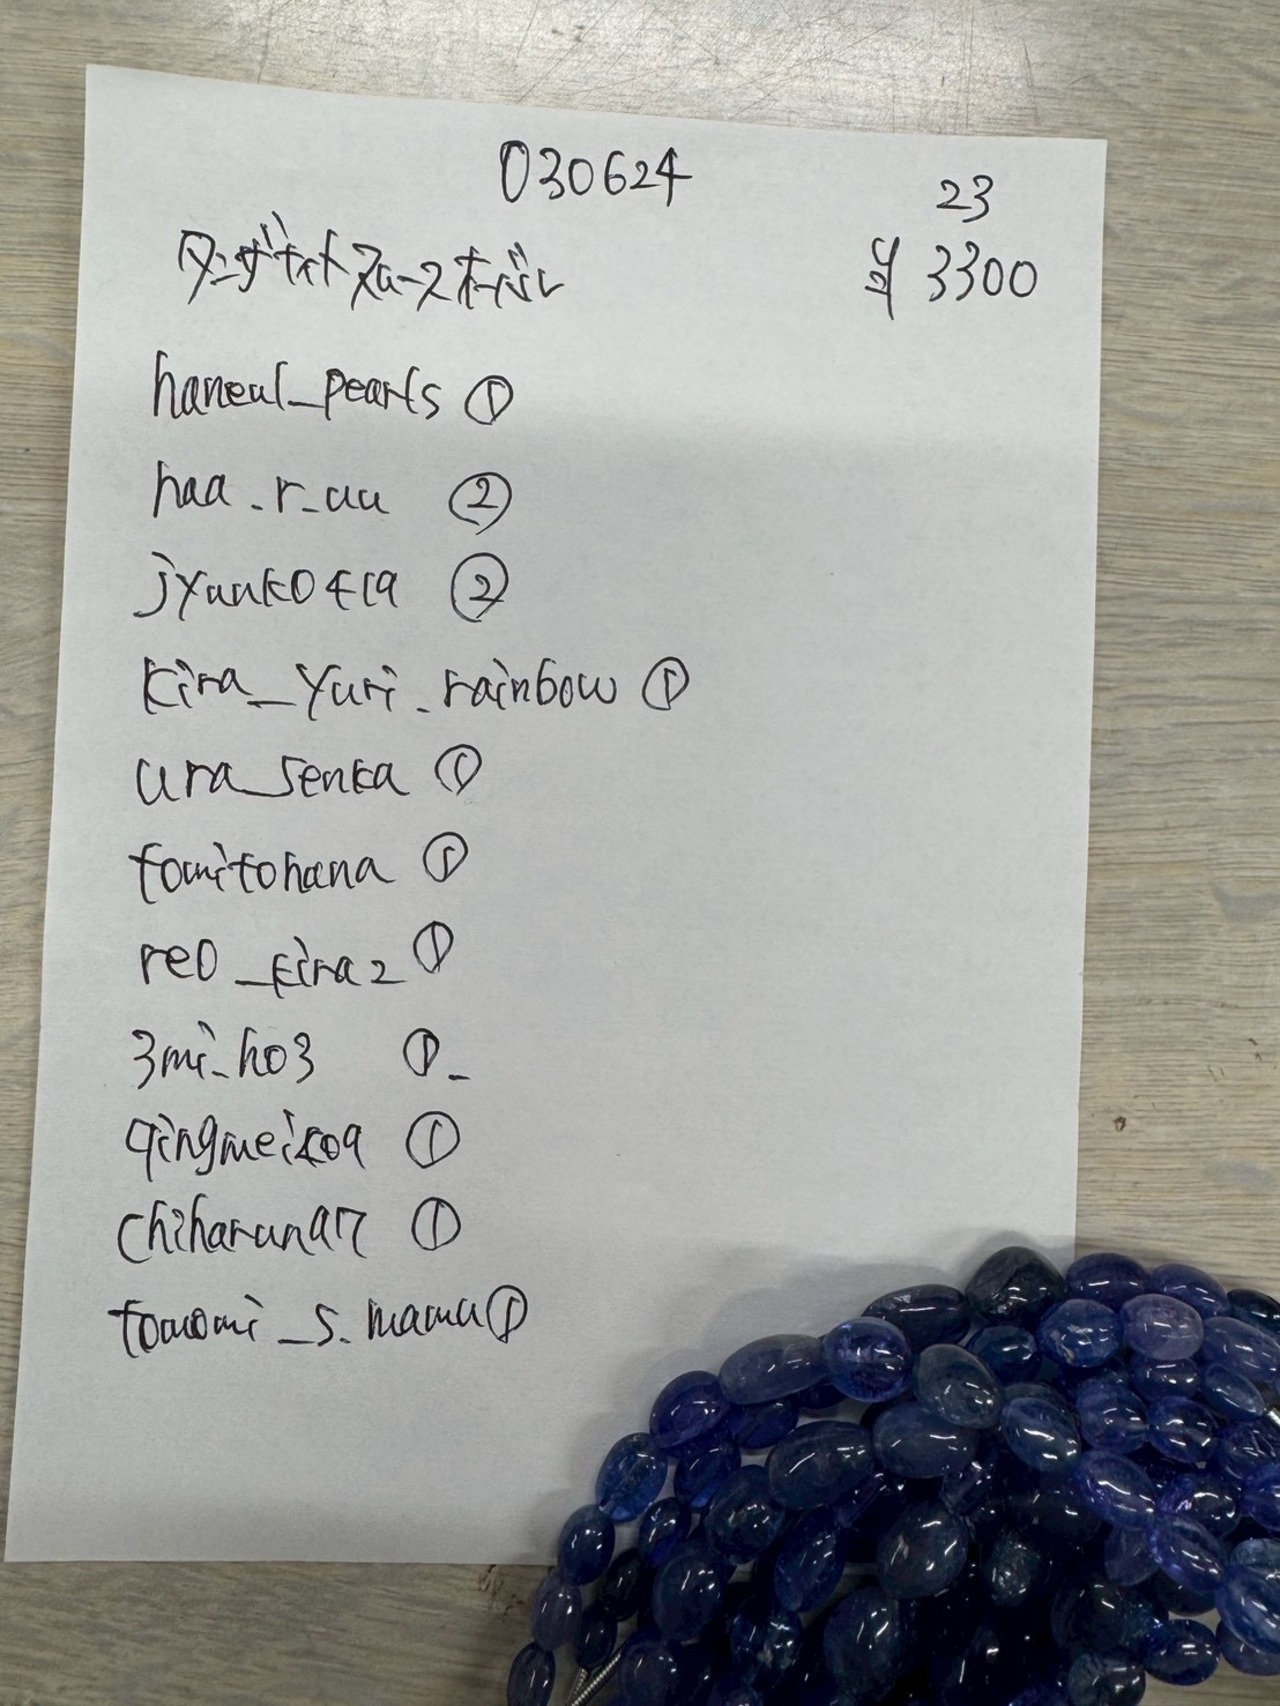 030624
23
タンザナイトスムースオーバル
¥3300
haneul_pearls ①
haa_r_uu ②
jyunko419 ②
kira_yuri_rainbow ①
ura_senka ①
tomitohana ①
reo_kira2 ①
3mi_ho3 ①_
qingmeiko9 ①
chiharuna17 ①
tomomi_s.mama ①